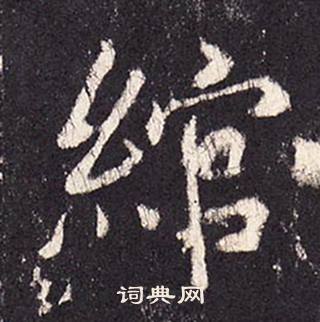 綰
词典网